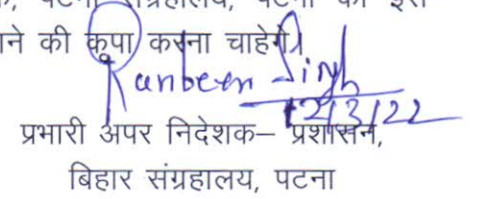 पटना संग्रहालय, पटना को इस
ने की कृपा करना चाहेंगे।
Ranbeer Singh
12/3/22
प्रभारी अपर निदेशक– प्रशासन,
बिहार संग्रहालय, पटना